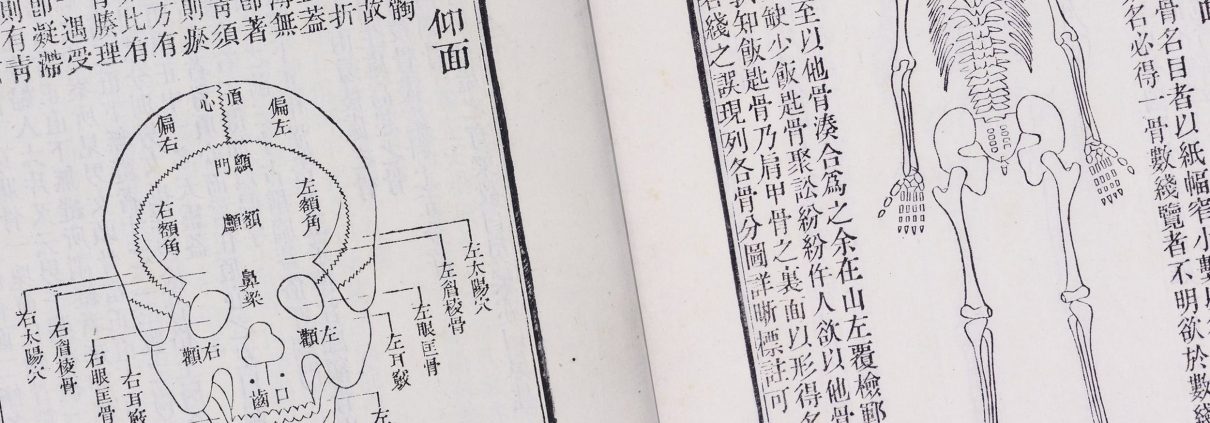 骨名目者以紙幅窄小數
名必得一骨數綫覽者不明欲於數綫
至以他骨湊合爲之余在山左覆檢鄆
缺少飯匙骨聚訟紛紛仵人欲以他骨
知飯匙骨乃肩甲骨之裏面以形得名
綫之誤現列各骨分圖詳晰標註可
仰面
髑
故
蓋
折
無
即著
須
則瘀
方有
比有
腠理
遇受
即凝滯
則有青
頂心
偏左
偏右
顖門
左額角
額顱
右額角
鼻梁
左太陽穴
左眉棱骨
左眼匡骨
左耳竅
左
左顴
右顴
口
齒
右太陽穴
右眉棱骨
右眼匡骨
右耳竅